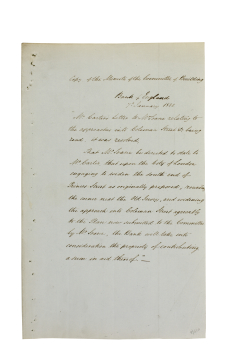 Copy of the Minute of the Committee of Building
Bank of England
January 18
Mr Carter's Letter to Mr Soane relating to
the approaches into Coleman Street &c being
read, it was resolved,
That Mr Soane be directed to state to
Mr Carter that upon the City of London
engaging to widen the south end of
Princes Street as originally proposed,
the same near the Old Jewry, and widening
the approach into Coleman Street agreeably
to the Plan now submitted to the Committee
by Mr Soane, the Bank will take into
consideration the propriety of contributing
a sum in aid thereof."